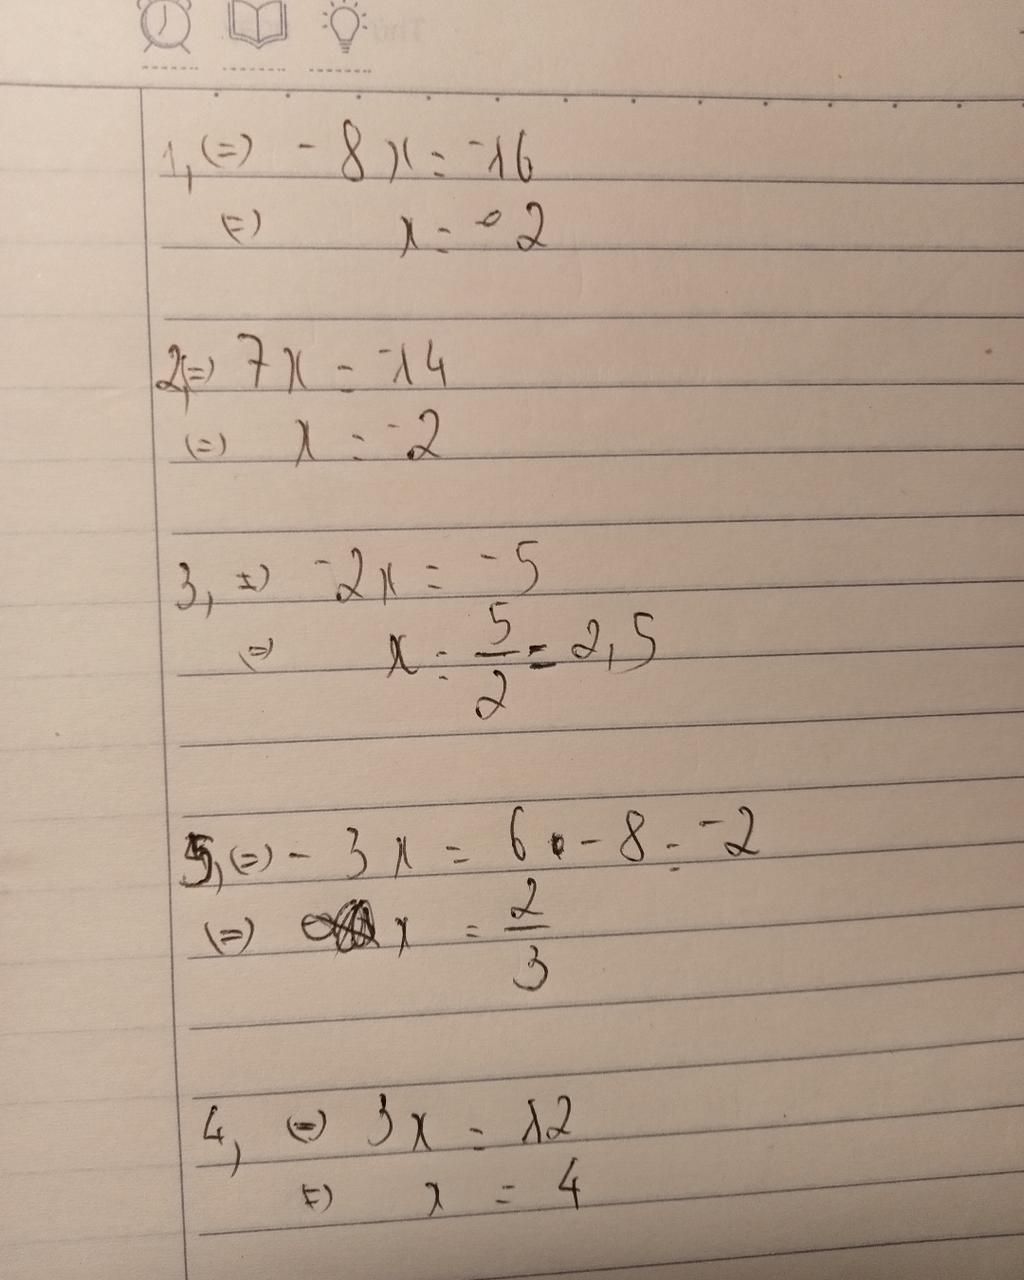 1, (=) -8x = -16
(=) x = -2
2, (=) 7x = -14
(=) x = -2
3, (=) -2x = -5
(=) x = 5/2 = 2,5
5, (=) -3x = 6 - 8 = -2
(=) x = 2/3
4, (=) 3x = 12
(=) x = 4